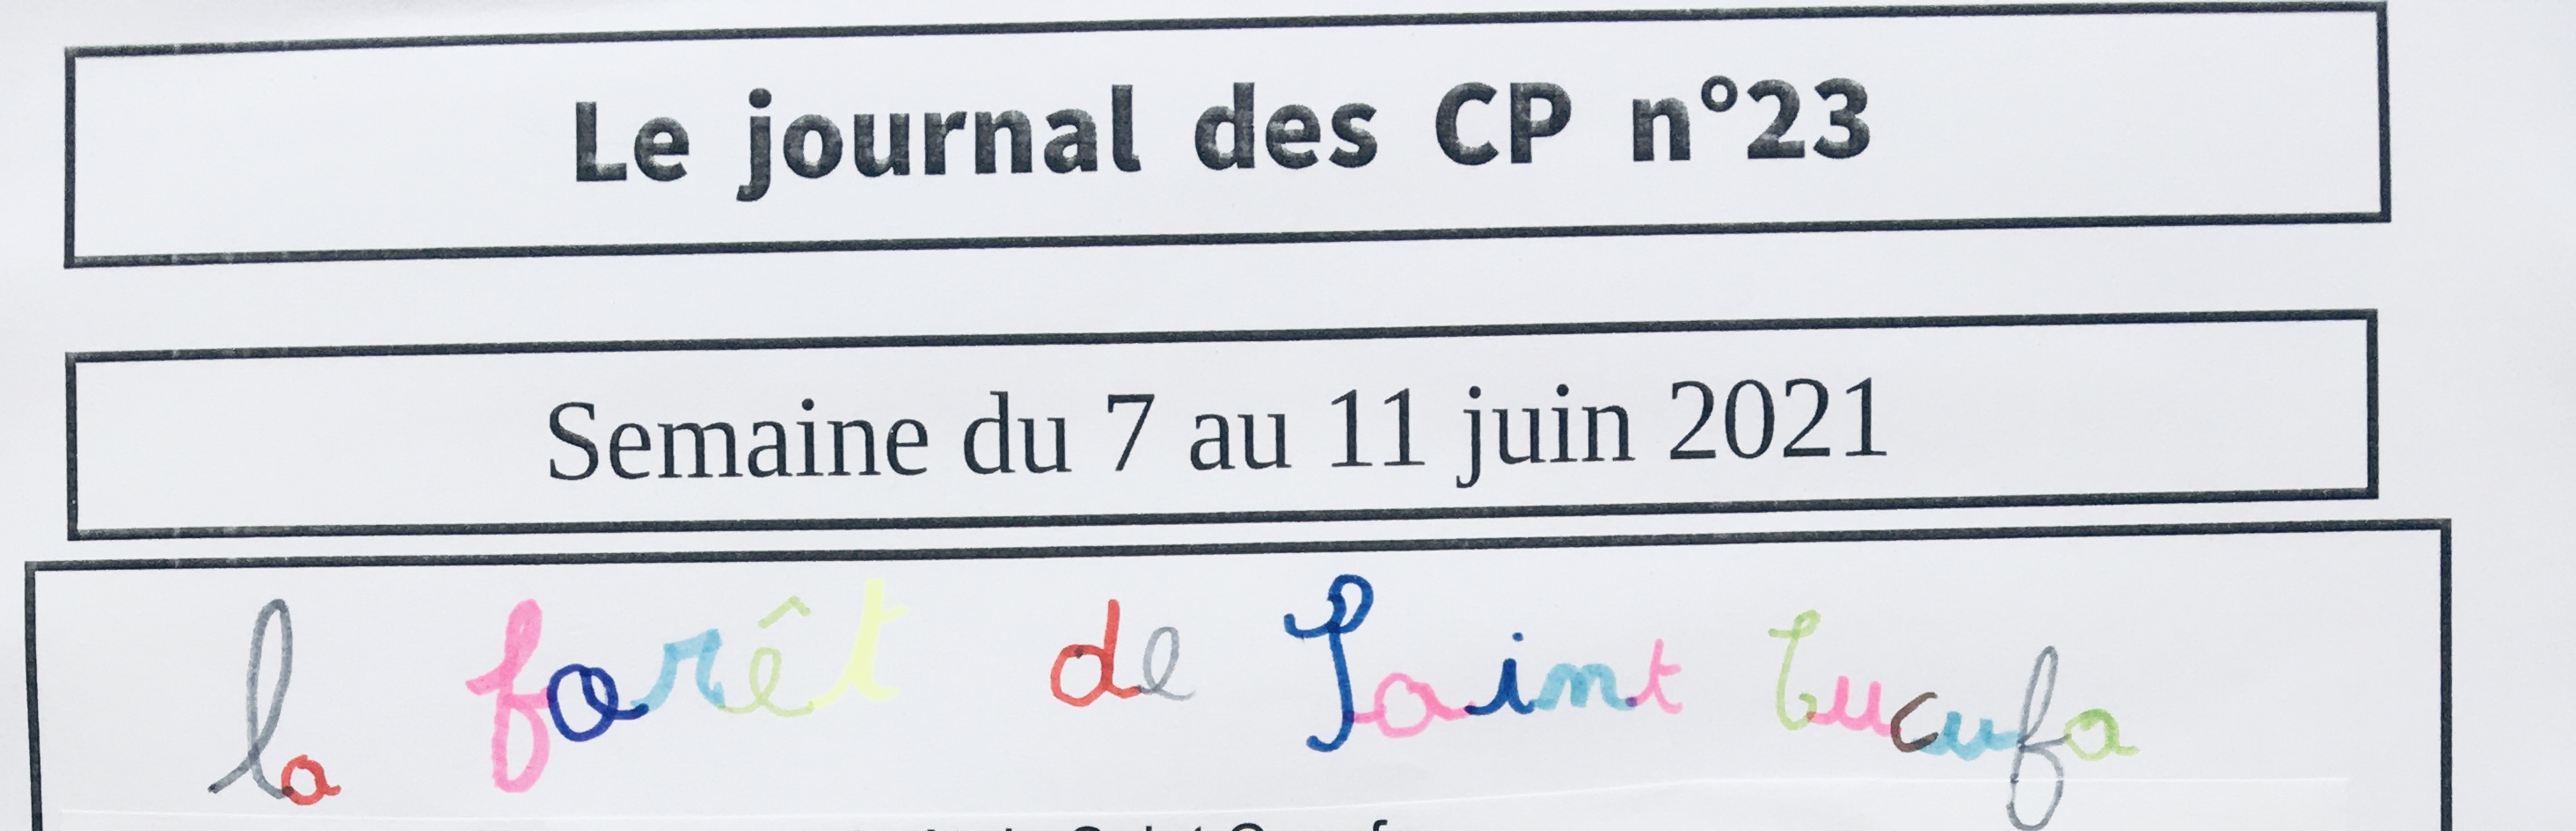 Le journal des CP n°23
Semaine du 7 au 11 juin 2021
la forêt de Saint Cucufa